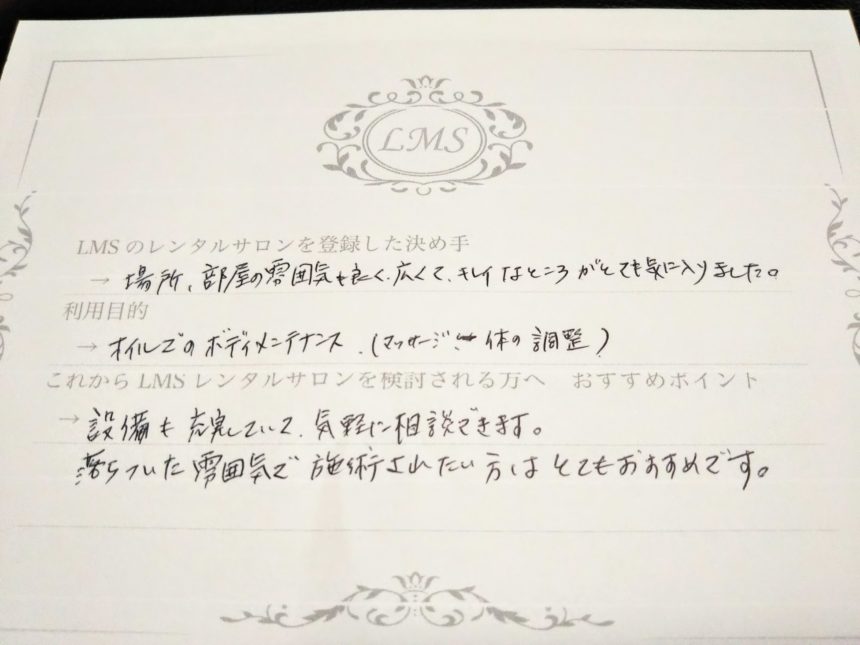 LMS
LMSのレンタルサロンを登録した決め手
→ 場所、部屋の雰囲気も良く、広くて、キレイなところがとても気に入りました。
利用目的
→ オイルでのボディメンテナンス、(マッサージ 体の調整)
これからLMSレンタルサロンを検討される方へ おすすめポイント
→ 設備も充実していて、気軽に相談できます。
落ちついた雰囲気で施術されたい方はとてもおすすめです。